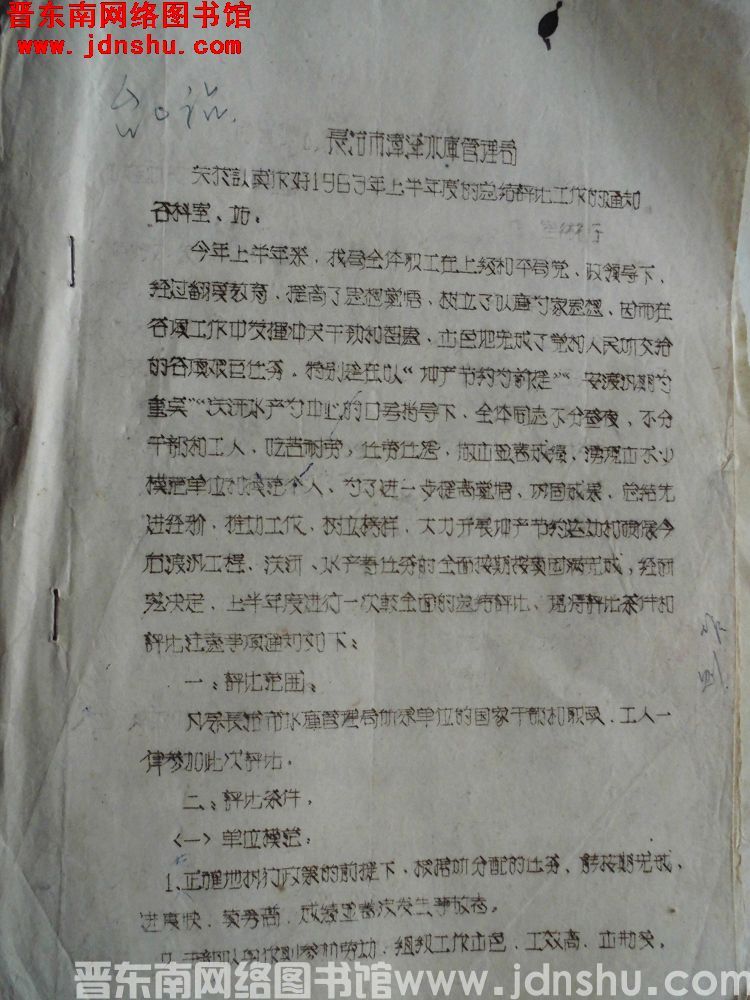 晋东南网络图书馆
www.jdnshu.com
長治市漳泽水庫管理局
关於認真作好1963年上半年度的总结評比工作的通知
各科室、站：
今年上半年来，我局全体职工在上級和本局党、政領导下，
经过翻現教育，提高了思想覚悟，树立了以庫为家思想，因而在
各項工作中发揮冲天干劲和智慧，出色地完成了党和人民所交給
的各項艰巨任务。特別是在以“增产节約为前提”“安渡汛期为
重点”“沃河水产为中心的口号指导下，全体同志不分昼夜，不分
干部和工人，吃苦耐劳，任劳任怨，做出显著成績，湧現出不少
模范单位和模范个人，为了进一步提高覚悟，巩固成果，总結先
进经驗，推动工作，树立榜样，大力开展增产节約运动和确保今
后渡汛工程、沃河、水产等任务的全面按期按質圆满完成，经研
究决定，上半年度进行一次較全面的总結評比，現将評比条件和
評比注意事項通知如下：
一：評比范围：
凡系長治市水庫管理局所系单位的国家干部和职員、工人一
律参加此次評比。
二：評比条件：
〈一〉单位模范：
1、正确地执行政策的前提下，根据所分配的任务，能按期完成，
进度快、質量高、成績显著没发生事故者。
組织工作出色，工效高，
晋东南网络图书馆www.jdnshu.com